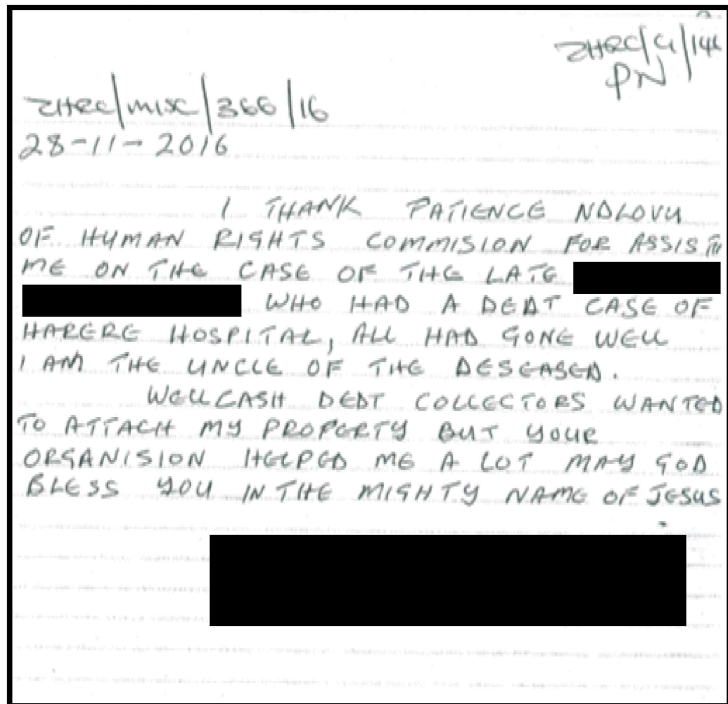 ZHRC/G/146
PN
ZHRC/MISC/366/16
28-11-2016
I THANK PATIENCE NDLOVU
OF HUMAN RIGHTS COMMISION FOR ASSIST
ME ON THE CASE OF THE LATE
WHO HAD A DEBT CASE OF
HARERE HOSPITAL, ALL HAD GONE WELL
I AM THE UNCLE OF THE DESEASED.
WELLCASH DEBT COLLECTORS WANTED
TO ATTACH MY PROPERTY BUT YOUR
ORGANISION HELPED ME A LOT MAY GOD
BLESS YOU IN THE MIGHTY NAME OF JESUS
.